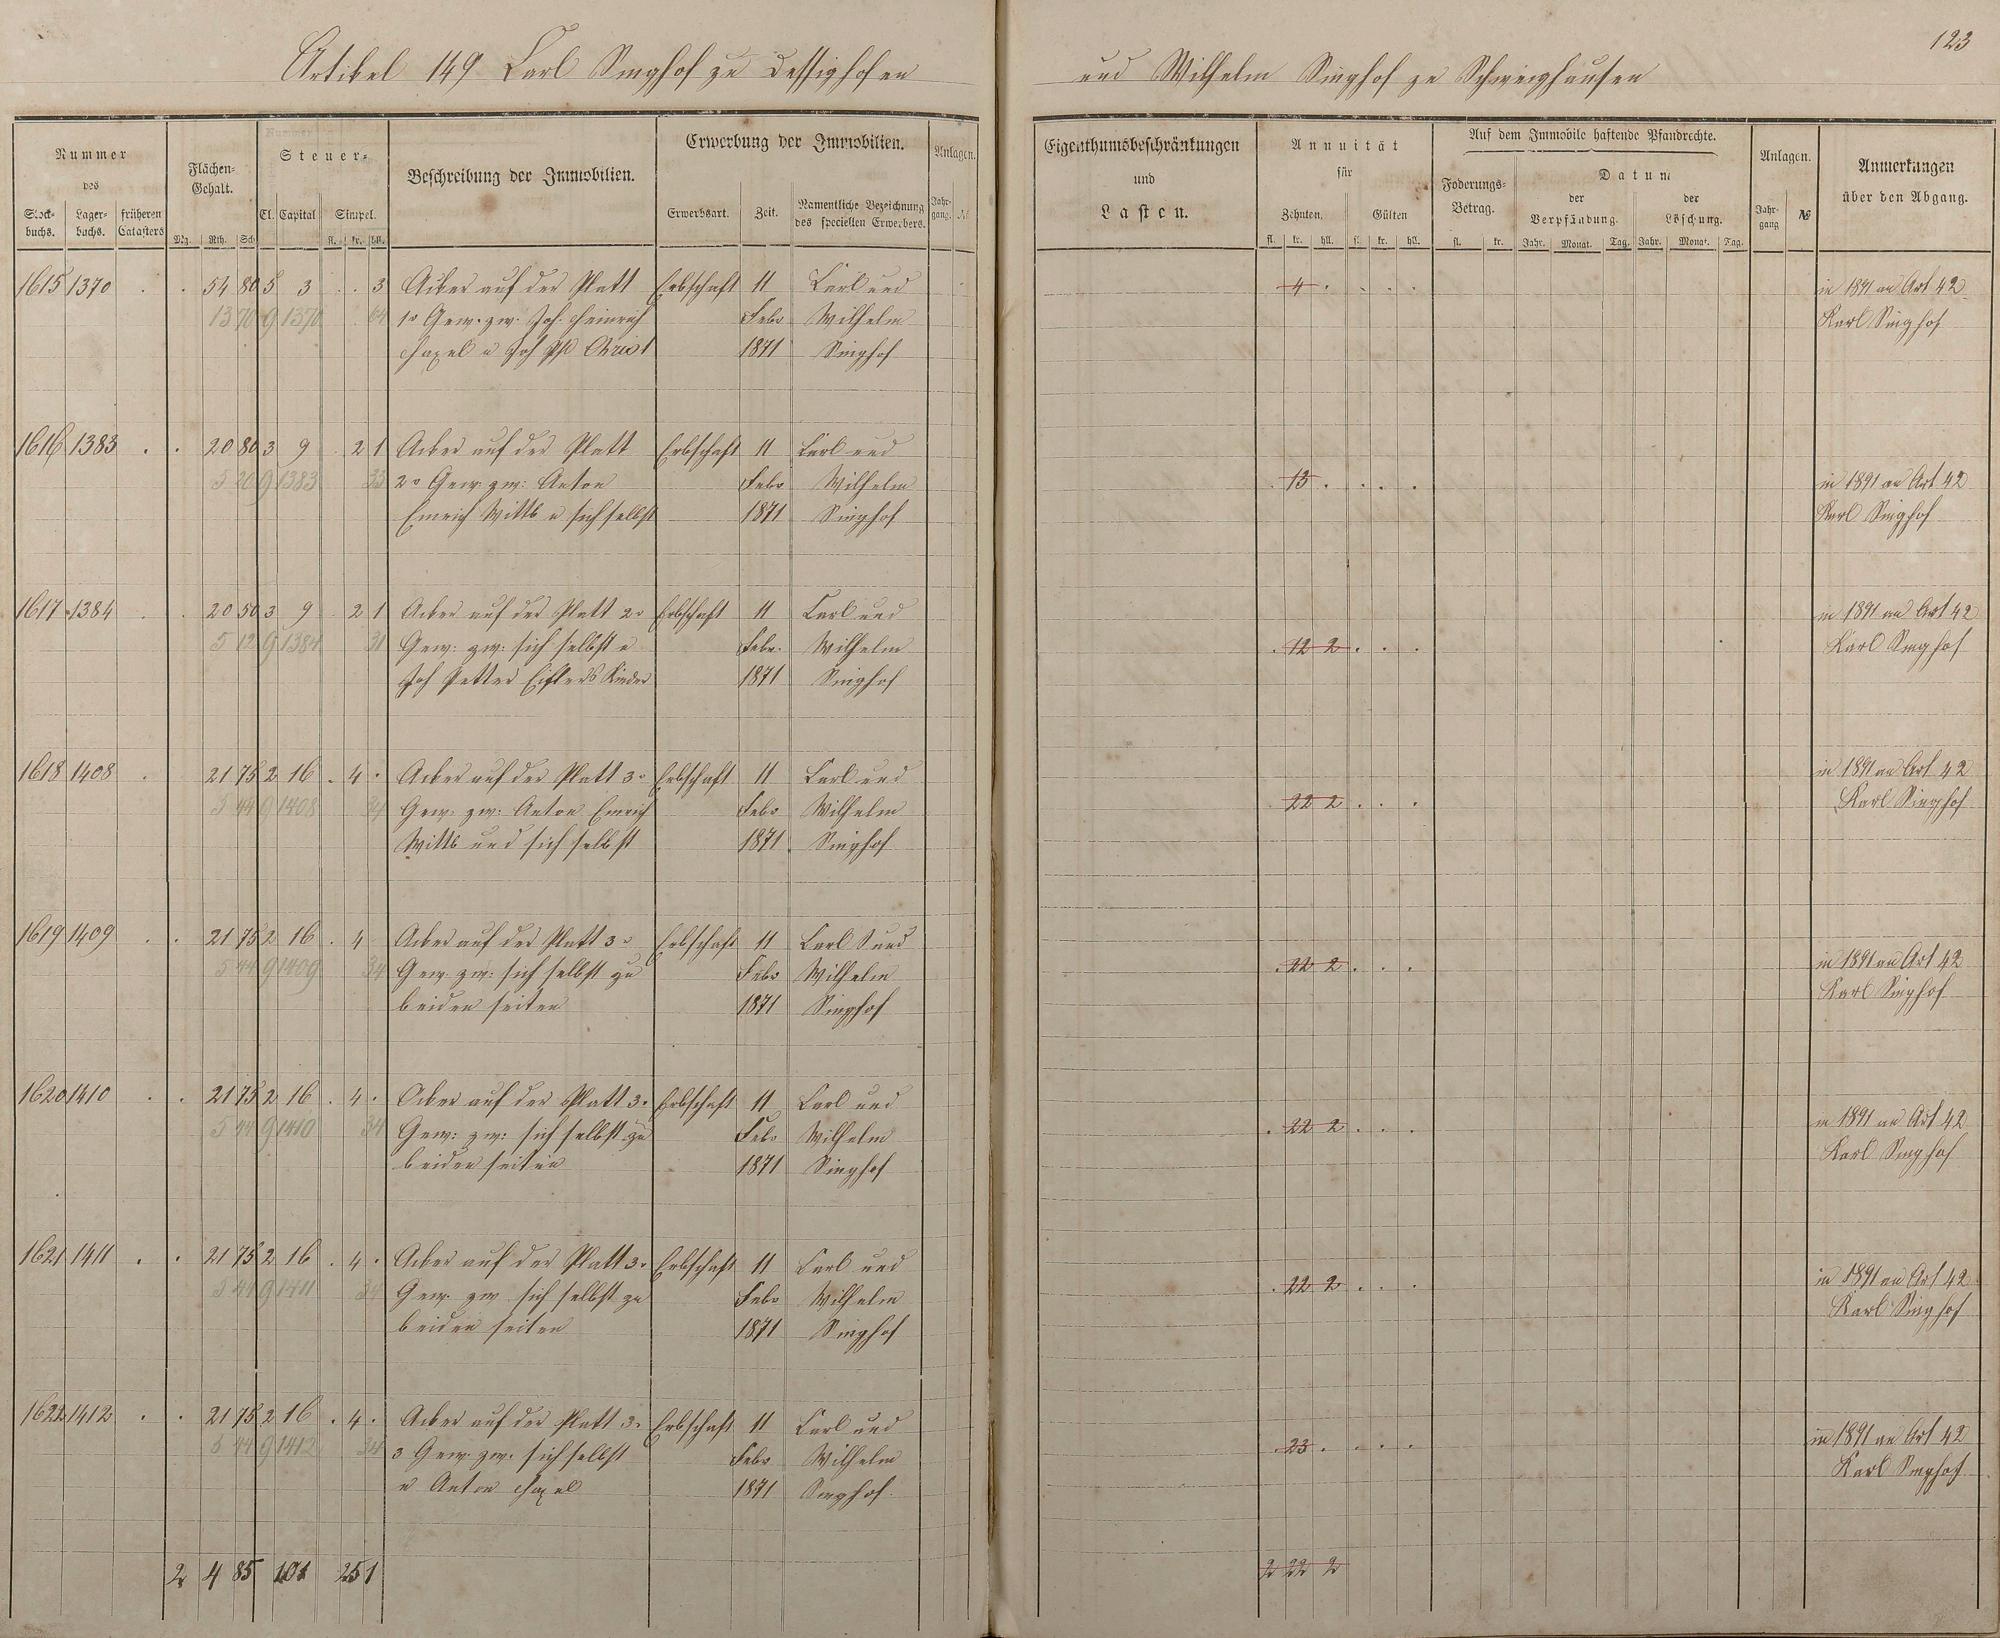 Artikel 149 Carl Singhof zu Dessighofen
und Wilhelm Singhof zu Schweighausen
123
Nummer
des
Stock-buchs. Lager-buchs. früheren Catasters
Flächen-Gehalt.
Mg. Rth. Sch.
Steuer-
Cl. Capital Simpel.
fl. kr. hll.
Beschreibung der Immobilien.
Erwerbung der Immobilien.
Erwerbsart. Zeit. Namentliche Bezeichnung des speciellen Erwerbers.
Anlagen.
Jahr-gang. №
Eigenthumsbeschränkungen
und
Lasten.
Annuität
für
Zehnten. Gülten
fl. kr. hll. fl. kr. hll.
Auf dem Immobile haftende Pfandrechte.
Foderungs-Betrag.
fl. kr.
Datum
der Verpfändung. der Löschung.
Jahr. Monat. Tag. Jahr. Monat. Tag.
Anlagen.
Jahr-gang №
Anmerkungen
über den Abgang.
1615 1370 . . 54 80 5 3 . . 3 Acker auf der Platt Erbschaft 11 Carl und 4 . . . . in 1891 an Art 42
13 70 9 1370 64 1r Gew. zw. Joh. Heinrich Febr Wilhelm Karl Singhof
Hagel u Joh Phl Christ 1871 Singhof
1616 1383 . . 20 80 3 9 . 2 1 Acker auf der Platt Erbschaft 11 Carl und
5 20 9 1383 33 2r Gew: zw: Anton Febr Wilhelm . 13 . . . . in 1891 an Art 42
Emrich Wittb u sich selbst 1871 Singhof Karl Singhof
1617 1384 . . 20 50 3 9 . 2 1 Acker auf der Platt 2r Erbschaft 11 Carl und in 1891 an Art 42
5 12 9 1384 31 Gew: zw: sich selbst u Febr. Wilhelm . 12 2 . . . Karl Singhof
Joh Petter Eiflers Kinder 1871 Singhof
1618 1408 . 21 75 2 16 . 4 . Acker auf der Platt 3r Erbschaft 11 Carl und in 1891 an Art 42
5 44 9 1408 34 Gew: zw: Anton Emrich Febr Wilhelm . 22 2 . . . Karl Singhof
Wittb und sich selbst 1871 Singhof
1619 1409 . . 21 75 2 16 . 4 Acker auf der Platt 3r Erbschaft 11 Carl S und
5 44 9 1409 34 Gew. zw: sich selbst zu Febr Wilhelm . 22 2 . . . in 1891 an Art 42
beiden seiten 1871 Singhof Karl Singhof
1620 1410 . . 21 75 2 16 . 4 . Acker auf der Platt 3r Erbschaft 11 Carl und
5 44 9 1410 34 Gew: zw: sich selbst zu Febr Wilhelm . 22 2 . . . in 1891 an Art 42
beiden seiten 1871 Singhof Karl Singhof
1621 1411 . . 21 75 2 16 . 4 . Acker auf der Platt 3r Erbschaft 11 Carl und
5 44 9 1411 34 Gew. zw sich selbst zu Febr Wilhelm . 22 2 . . . in 1891 an Art 42
beiden seiten 1871 Singhof Karl Singhof
1622 1412 . . 21 75 2 16 . 4 . Acker auf der Platt 3r Erbschaft 11 Carl und
5 44 9 1412 34 3 Gew. zw. sich selbst Febr Wilhelm . 23 . . . . in 1891 an Art 42
u Anton Hagel 1871 Singhof Karl Singhof
2 4 85 101 25 1 2 22 2